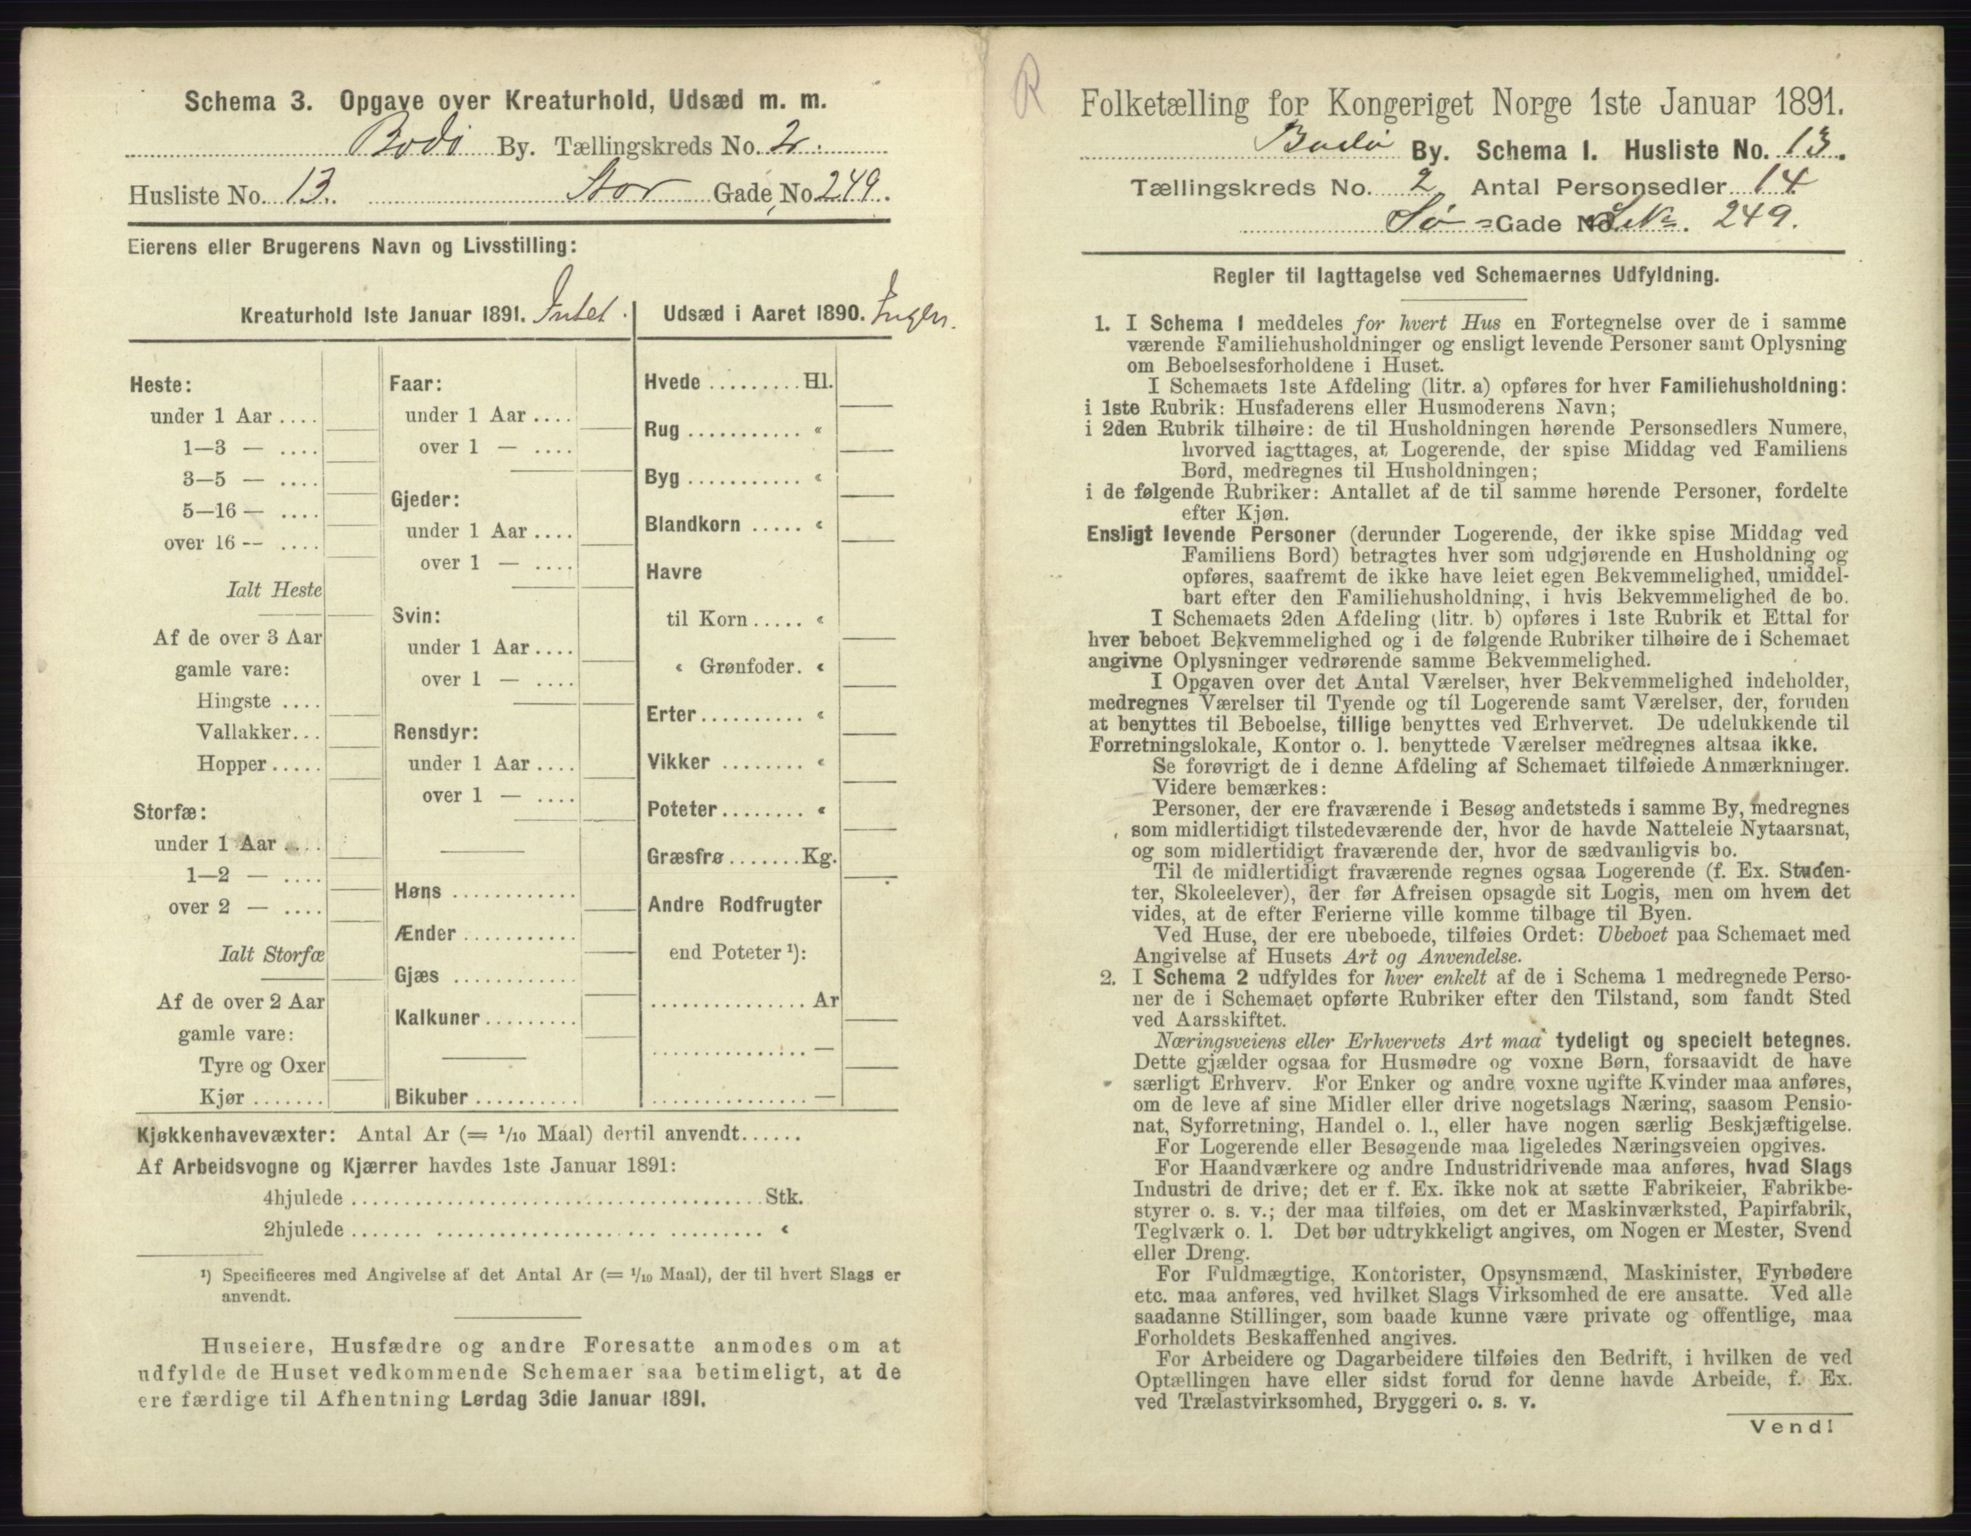 Schema 3. Opgave over Kreaturhold, Udsæd m. m.
Bodø By. Tællingskreds No. 2.
Husliste No. 13. Stor Gade, No 249.
Eierens eller Brugerens Navn og Livsstilling:
Kreaturhold 1ste Januar 1891. Intet.
Heste:
under 1 Aar ....
1—3 — ....
3—5 — ....
5—16 — ....
over 16 -- ....
Ialt Heste
Af de over 3 Aar
gamle vare:
Hingste ....
Vallakker...
Hopper.....
Storfæ:
under 1 Aar ....
1—2 — ....
over 2 — ....
Ialt Storfæ
Af de over 2 Aar
gamle vare:
Tyre og Oxer
Kjør .......
Faar:
under 1 Aar ....
over 1 — ....
Gjeder:
under 1 Aar ....
over 1 — ....
Svin:
under 1 Aar ....
over 1 — ....
Rensdyr:
under 1 Aar ....
over 1 — ....
Høns ............
Ænder ...........
Gjæs ............
Kalkuner.........
Bikuber ..........
Udsæd i Aaret 1890. Ingen.
Hvede .........Hl.
Rug ........... «
Byg ........... «
Blandkorn ..... «
Havre
til Korn ..... «
« Grønfoder. «
Erter.......... «
Vikker ........ «
Poteter........ «
Græsfrø.......Kg.
Andre Rodfrugter
end Poteter ¹):
...............Ar
............... —
............... —
Kjøkkenhavevæxter: Antal Ar (= 1/10 Maal) dertil anvendt......
Af Arbeidsvogne og Kjærrer havdes 1ste Januar 1891:
4hjulede ........................................Stk.
2hjulede ........................................ «
¹) Specificeres med Angivelse af det Antal Ar (= 1/10 Maal), der til hvert Slags er
anvendt.
Huseiere, Husfædre og andre Foresatte anmodes om at
udfylde de Huset vedkommende Schemaer saa betimeligt, at de
ere færdige til Afhentning Lørdag 3die Januar 1891.
R
Folketælling for Kongeriget Norge 1ste Januar 1891.
Bodø By. Schema I. Husliste No. 13.
Tællingskreds No. 2 Antal Personsedler 14
Sø- Gade No. 249.
Regler til Iagttagelse ved Schemaernes Udfyldning.
1. I Schema I meddeles for hvert Hus en Fortegnelse over de i samme
værende Familiehusholdninger og ensligt levende Personer samt Oplysning
om Beboelsesforholdene i Huset.
I Schemaets 1ste Afdeling (litr. a) opføres for hver Familiehusholdning:
i 1ste Rubrik: Husfaderens eller Husmoderens Navn;
i 2den Rubrik tilhøire: de til Husholdningen hørende Personsedlers Numere,
hvorved iagttages, at Logerende, der spise Middag ved Familiens
Bord, medregnes til Husholdningen;
i de følgende Rubriker: Antallet af de til samme hørende Personer, fordelte
efter Kjøn.
Ensligt levende Personer (derunder Logerende, der ikke spise Middag ved
Familiens Bord) betragtes hver som udgjørende en Husholdning og
opføres, saafremt de ikke have leiet egen Bekvemmelighed, umiddel-
bart efter den Familiehusholdning, i hvis Bekvemmelighed de bo.
I Schemaets 2den Afdeling (litr. b) opføres i 1ste Rubrik et Ettal for
hver beboet Bekvemmelighed og i de følgende Rubriker tilhøire de i Schemaet
angivne Oplysninger vedrørende samme Bekvemmelighed.
I Opgaven over det Antal Værelser, hver Bekvemmelighed indeholder,
medregnes Værelser til Tyende og til Logerende samt Værelser, der, foruden
at benyttes til Beboelse, tillige benyttes ved Erhvervet. De udelukkende til
Forretningslokale, Kontor o. l. benyttede Værelser medregnes altsaa ikke.
Se forøvrigt de i denne Afdeling af Schemaet tilføiede Anmærkninger.
Videre bemærkes:
Personer, der ere fraværende i Besøg andetsteds i samme By, medregnes
som midlertidigt tilstedeværende der, hvor de havde Natteleie Nytaarsnat,
og som midlertidigt fraværende der, hvor de sædvanligvis bo.
Til de midlertidigt fraværende regnes ogsaa Logerende (f. Ex. Studen-
ter, Skoleelever), der før Afreisen opsagde sit Logis, men om hvem det
vides, at de efter Ferierne ville komme tilbage til Byen.
Ved Huse, der ere ubeboede, tilføies Ordet: Ubeboet paa Schemaet med
Angivelse af Husets Art og Anvendelse.
2. I Schema 2 udfyldes for hver enkelt af de i Schema 1 medregnede Perso-
ner de i Schemaet opførte Rubriker efter den Tilstand, som fandt Sted
ved Aarsskiftet.
Næringsveiens eller Erhvervets Art maa tydeligt og specielt betegnes.
Dette gjælder ogsaa for Husmødre og voxne Børn, forsaavidt de have
særligt Erhverv. For Enker og andre voxne ugifte Kvinder maa anføres,
om de leve af sine Midler eller drive nogetslags Næring, saasom Pensio-
nat, Syforretning, Handel o. l., eller have nogen særlig Beskjæftigelse.
For Logerende eller Besøgende maa ligeledes Næringsveien opgives.
For Haandværkere og andre Industridrivende maa anføres, hvad Slags
Industri de drive; det er f. Ex. ikke nok at sætte Fabrikeier, Fabrikbe-
styrer o. s. v.; der maa tilføies, om det er Maskinværksted, Papirfabrik,
Teglværk o. l. Det bør udtrykkeligt angives, om Nogen er Mester, Svend
eller Dreng.
For Fuldmægtige, Kontorister, Opsynsmænd, Maskinister, Fyrbødere
etc. maa anføres, ved hvilket Slags Virksomhed de ere ansatte. Ved alle
saadanne Stillinger, som baade kunne være private og offentlige, maa
Forholdets Beskaffenhed angives.
For Arbeidere og Dagarbeidere tilføies den Bedrift, i hvilken de ved
Optællingen have eller sidst forud for denne havde Arbeide, f. Ex.
ved Trælastvirksomhed, Bryggeri o. s. v.
Vend!